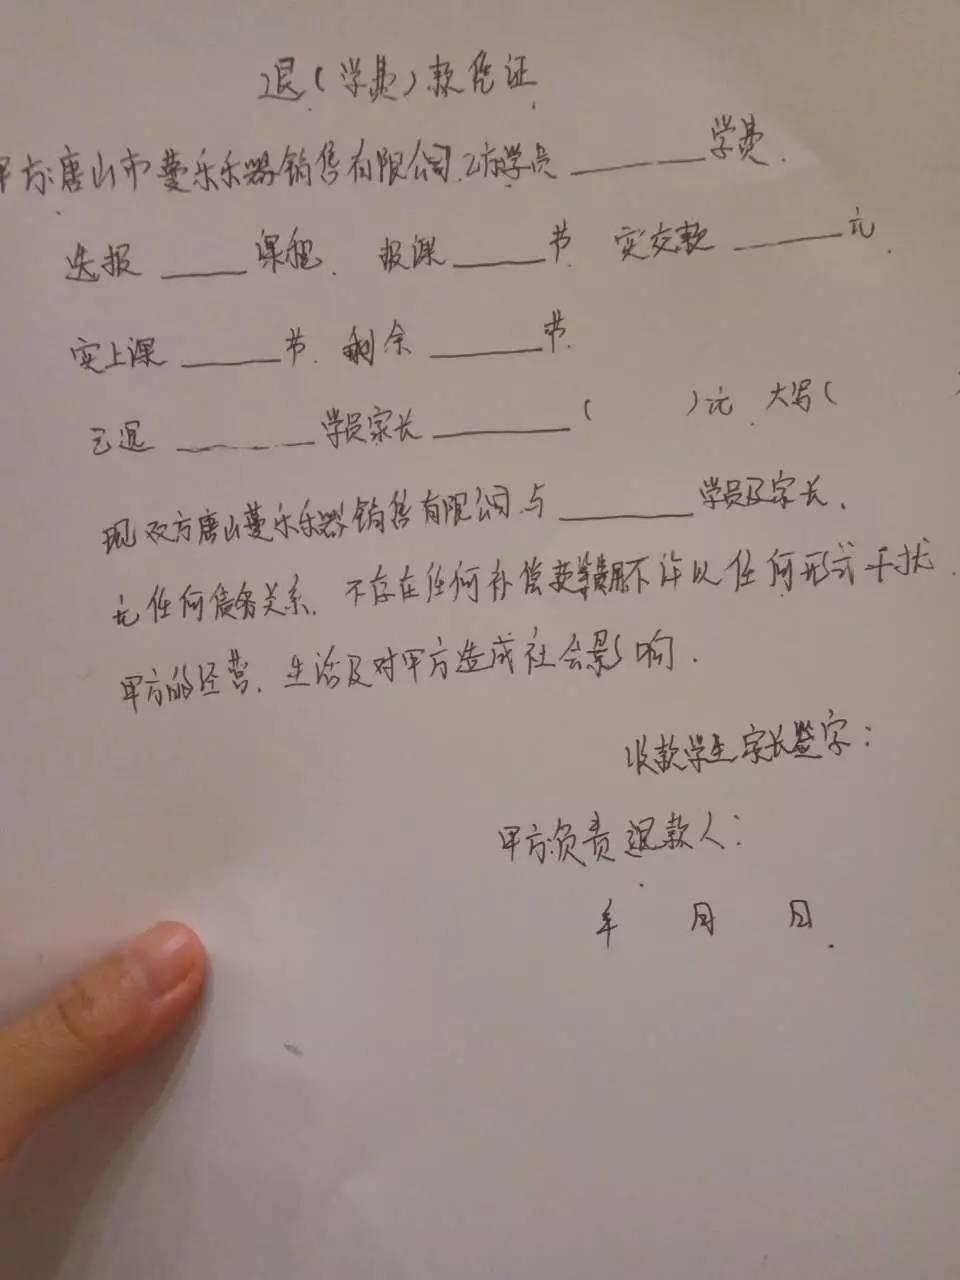 退(学费)款凭证
甲方:唐山市蔓乐乐器销售有限公司.乙方学员______学费.
选报____课程.报课____节 实交款____元.
实上课____节.剩余____节.
已退______学员家长______( )元.大写(
现双方唐山蔓乐乐器销售有限公司.与______学员及家长.
无任何债务关系.不存在任何补偿 不许以任何形式干扰
甲方的经营.生活及对甲方造成社会影响.
收款学生家长签字:
甲方负责退款人:
年 月 日.